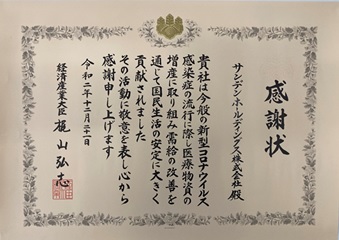 感謝状
サンデンホールディングス株式会社殿
貴社は今般の新型コロナウイルス
感染症の流行に際し医療物資の
増産に取り組み需給の改善を
通じて国民生活の安定に大きく
貢献されました
その活動に敬意を表し心から
感謝申し上げます
令和二年十二月二十一日
経済産業大臣 梶山弘志